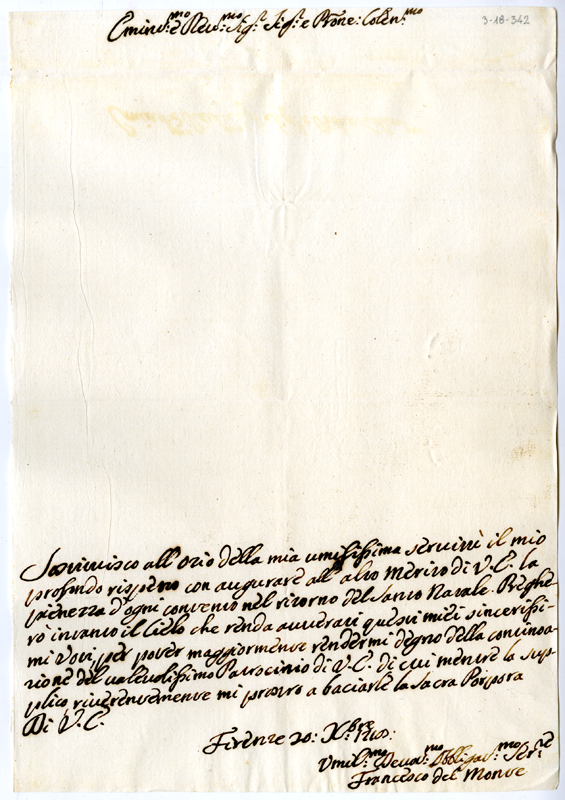 Emin:mo e Reu:mo Sig:r Sig:r e Prone: Colen:mo
3-18-342
Sostituisco all'Ozio della mia umilissima seruitù il mio
profondo rispetto con augurare all'alto Merito di V.E. la
pienezza d'ogni contento nel ritorno del Santo Natale. Preghe-
rò intanto il Cielo che renda auuerati questi miei sincerissi-
mi Voti, per poter maggiormente rendermi degno della continoa-
zione del ualeuolissimo Patrocinio di V.E. di cui mentre la sup-
plico riuerentemente mi prostro a baciarle la Sacra Porpora
Di V.E.
Firenze 20: Xbre
Umil:mo Deuot:mo Obbligat:mo Ser:re
Francesco del Monte